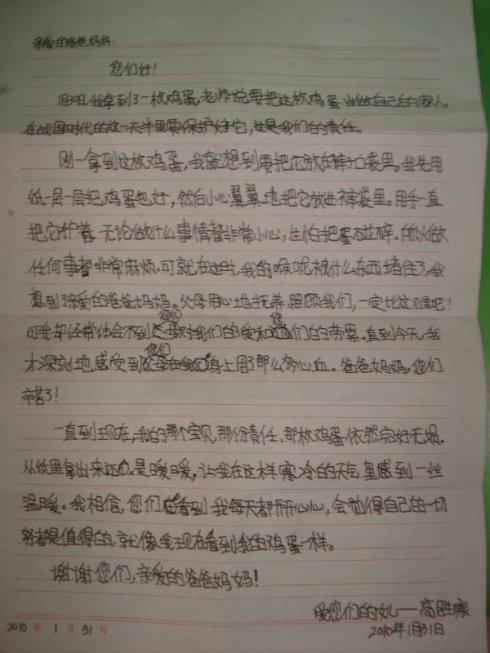 亲爱的爸爸妈妈:
您们好!
我拿到了一枚鸡蛋,老师说要把这枚鸡蛋当做自己的家人。
在战国时代的这一天半里要保护好它,这是我们的责任。
刚一拿到这枚鸡蛋,我就想到要把它放在裤子口袋里。我先用
纸一层一层把鸡蛋包好,然后小心翼翼地把它放进裤袋里。用手一直
把它护着,无论做什么事情都非常小心,生怕把蛋碰碎。所以做
任何事都非常麻烦。可就在这时,我的喉咙被什么东西堵住了,我
想到了亲爱的爸爸妈妈。父母用心地抚养、照顾我们,一定比这难吧!
可我却经常体会不到您们对我们的爱和您们的劳累。直到今天,我
才深刻地感受到您们在我身上用了那么多心血。爸爸妈妈,您们
辛苦了!
一直到现在,我的那个宝贝,那份责任,那枚鸡蛋依然完好无损。
从纸里拿出来还是暖暖,让我在这样寒冷的天气里感到一丝
温暖。我相信,您们在看到我每天都开开心心,会觉得自己的一切
努力都是值得的,就像我现在看到我的鸡蛋一样。
谢谢您们,亲爱的爸爸妈妈!
爱您们的女儿——高胜寒
2010年1月31日
2010年1月31日